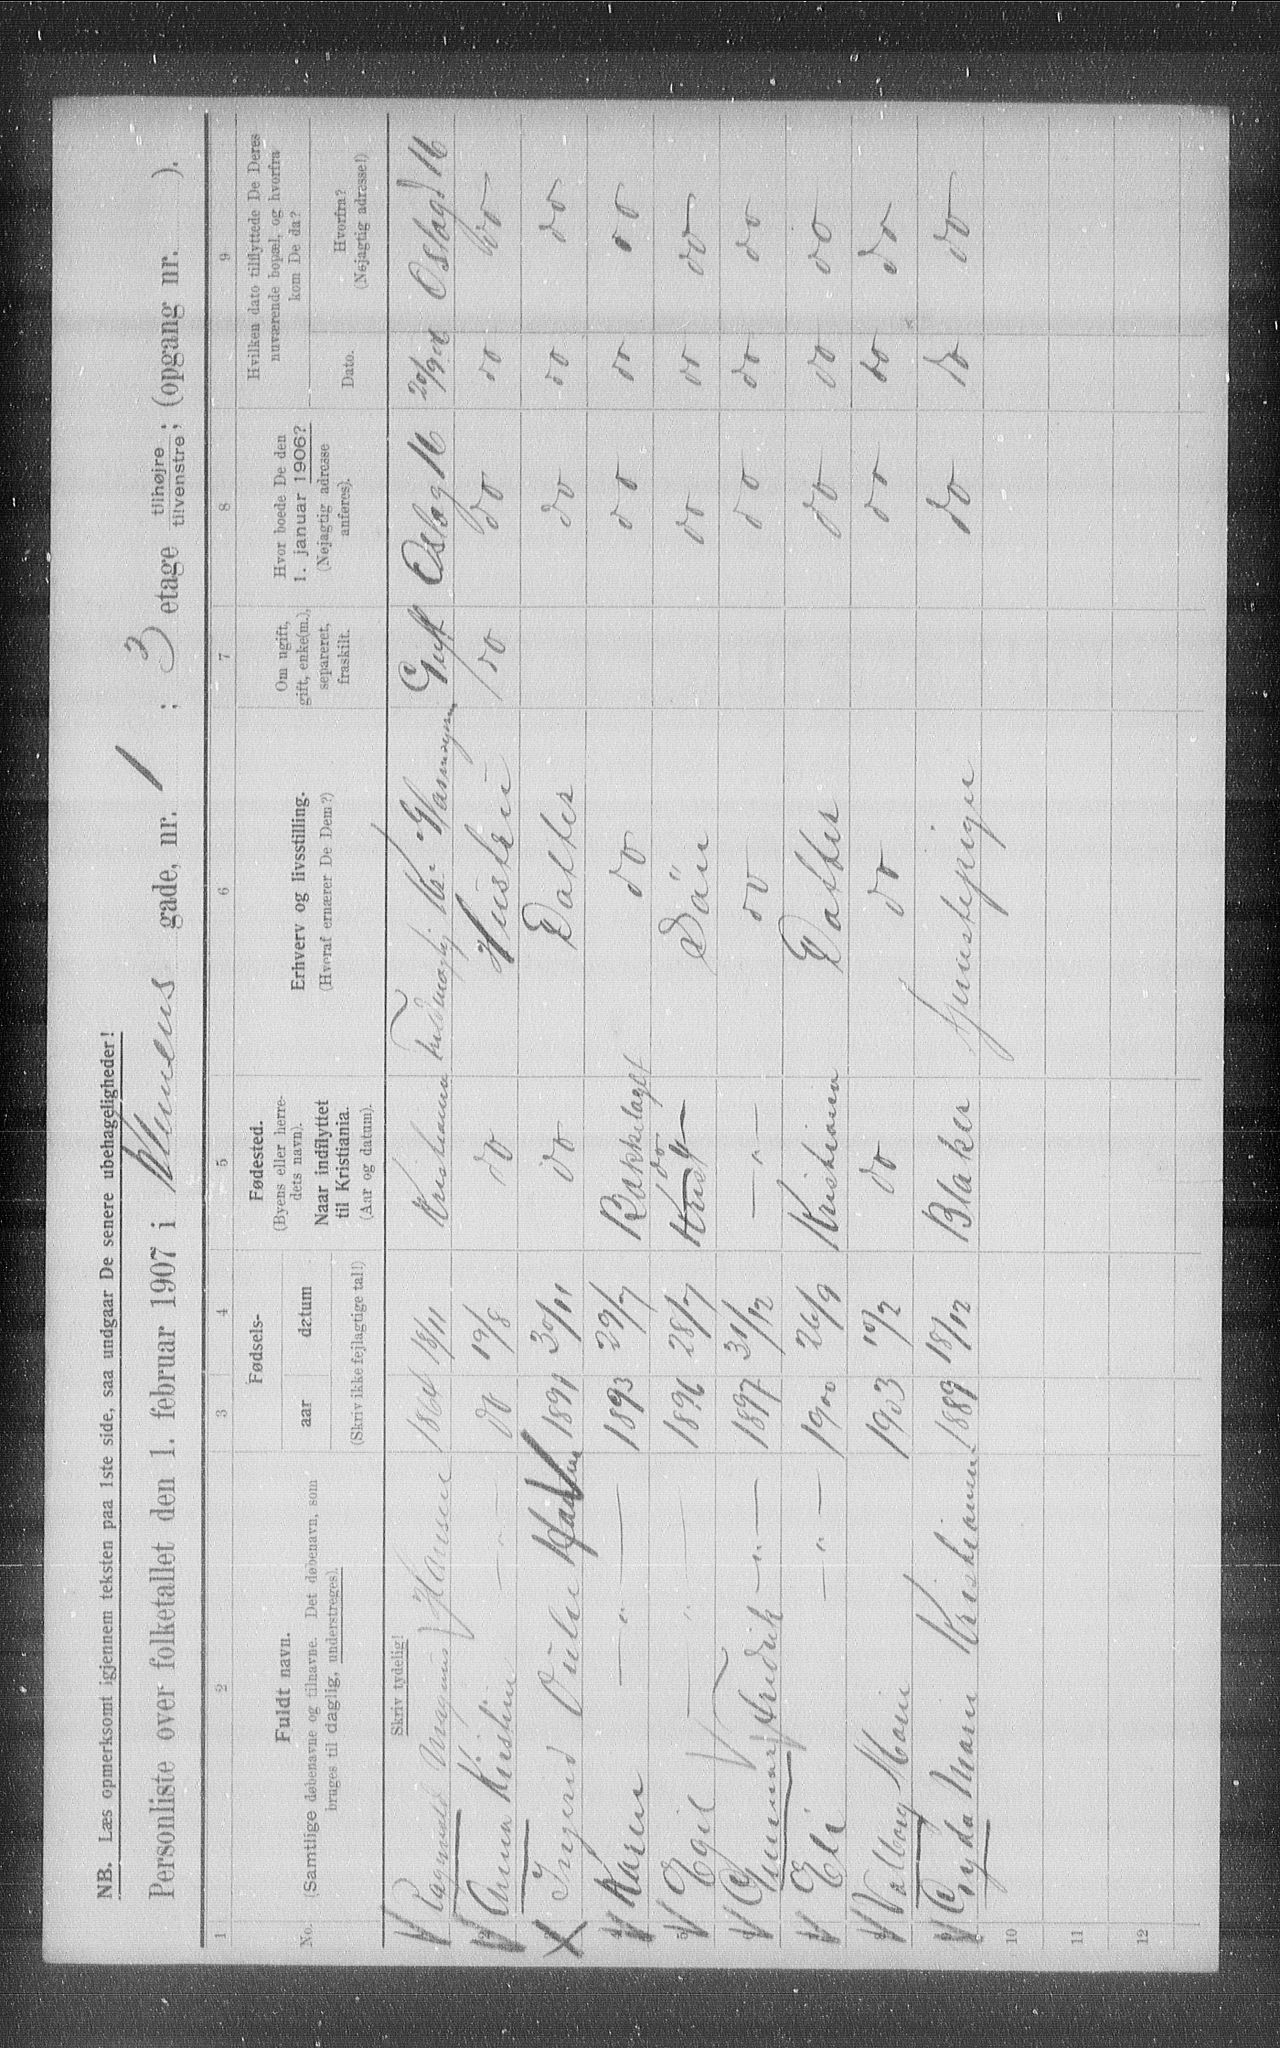 NB. Læs opmerksomt igjennem teksten paa 1ste side, saa undgaar De senere ubehageligheder!
Personliste over folketallet den 1. februar 1907 i Klemens gade, nr. 1 ; 3 etage tilhøjre ; tilvenstre ; (opgang nr. ).
1 2 3 4 5 6 7 8 9
No. Fuldt navn. (Samtlige døbenavne og tilnavne. Det døbenavn, som bruges til daglig, understreges).
Fødsels- aar datum (Skriv ikke fejlagtige tal!)
Fødested. (Byens eller herredets navn). Naar indflyttet til Kristiania. (Aar og datum).
Erhverv og livsstilling. (Hveraf ernærer De Dem?)
Om ugift, gift, enke(m.), separeret, fraskilt.
Hvor boede De den 1. januar 1906? (Nøjagtig adresse anføres).
Hvilken dato tilflyttede De Deres nuværende bopæl, og hvorfra kom De da?
Dato. Hvorfra? (Nøjagtig adresse!)
Skriv tydelig!
Ragnvald Magnus Hansen 1864 18/11 Kristiania Fuldmægtig Kr. Gift Oslog 16 20/9 Oslogd 16
2 Anna Kirstine — " — do 19/8 do Hustru do do do do
Ingerid 1891 30/11 do Datter do do do
Karen — " — 1893 29/7 Bækkelaget do do do do
5 Egil — " — 1896 28/7 do Sön do do do
Gunnar Fredrik — " — 1897 31/12 — " — do do do do
Eli — " — 1900 26/9 Kristiania Datter do do do
Valborg Marie 1903 10/2 do do do do do
Gyda Marn Kristiansen 1889 18/12 Blaker tjenestepige do do do
10
11
12